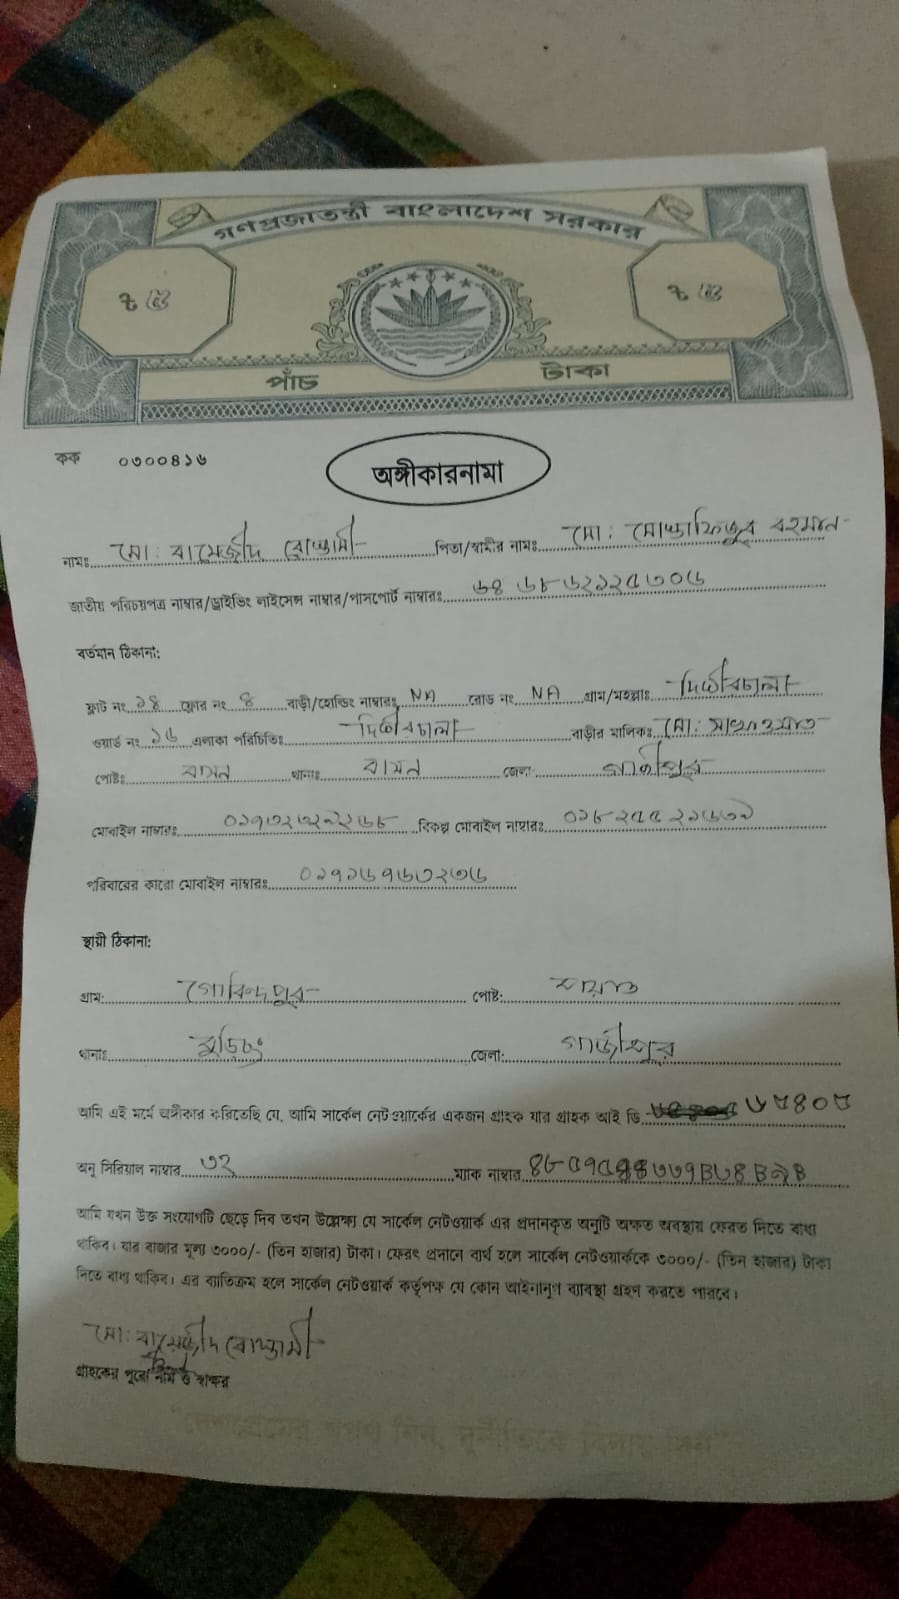 গণপ্রজাতন্ত্রী বাংলাদেশ সরকার
৳ ৫ ৳ ৫
পাঁচ টাকা
কক ০৩০০৪১৬
অঙ্গীকারনামা
নামঃ মো: বায়েজীদ বোস্তামী পিতা/স্বামীর নামঃ মো: মোস্তাফিজুর রহমান
জাতীয় পরিচয়পত্র নাম্বার/ড্রাইভিং লাইসেন্স নাম্বার/পাসপোর্ট নাম্বারঃ
বর্তমান ঠিকানা:
ফ্লাট নং ১৪ ফ্লোর নং ৪ বাড়ী/হোল্ডিং নাম্বারঃ NA রোড নং NA গ্রাম/মহল্লাঃ দিঘীরচালা
ওয়ার্ড নং ১৬ এলাকা পরিচিতিঃ দিঘীরচালা বাড়ীর মালিকঃ মো:
পোষ্টঃ বাসন থানাঃ বাসন জেলা: গাজীপুর
মোবাইল নাম্বারঃ বিকল্প মোবাইল নাম্বারঃ
পরিবারের কারো মোবাইল নাম্বারঃ ০১৭১৬৭৬৩২৩৬
স্থায়ী ঠিকানা:
গ্রাম: গোবিন্দপুর পোষ্ট:
থানাঃ বুড়িচং জেলা: গাজীপুর
আমি এই মর্মে অঙ্গীকার করিতেছি যে, আমি সার্কেল নেটওয়ার্কের একজন গ্রাহক যার গ্রাহক আই ডি
অনু সিরিয়াল নাম্বার ৩২ ম্যাক নাম্বার
আমি যখন উক্ত সংযোগটি ছেড়ে দিব তখন উল্লেক্ষ্য যে সার্কেল নেটওয়ার্ক এর প্রদানকৃত অনুটি অক্ষত অবস্থায় ফেরত দিতে বাধ্য
থাকিব। যার বাজার মূল্য ৩০০০/- (তিন হাজার) টাকা। ফেরৎ প্রদানে ব্যর্থ হলে সার্কেল নেটওয়ার্ককে ৩০০০/- (তিন হাজার) টাকা
দিতে বাধ্য থাকিব। এর ব্যতিক্রম হলে সার্কেল নেটওয়ার্ক কর্তৃপক্ষ যে কোন আইনানুগ ব্যাবস্থা গ্রহণ করতে পারবে।
মো: বায়েজীদ বোস্তামী
গ্রাহকের পুরো নাম ও স্বাক্ষর
"দেশপ্রেমের শপথ নিন, দুর্নীতিকে বিদায় দিন"